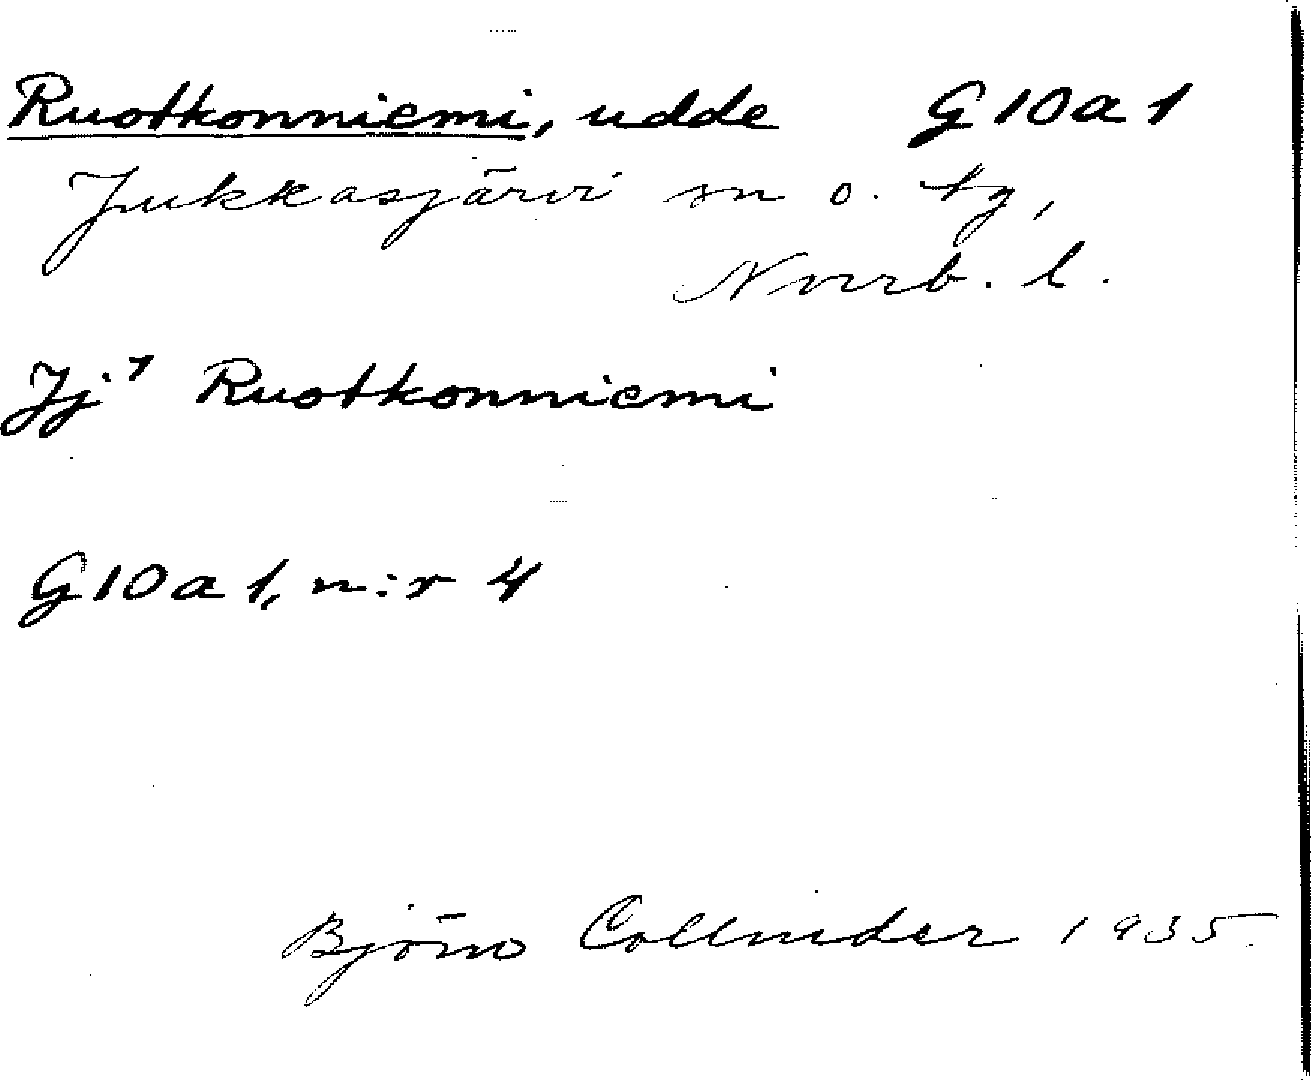 Ruotkonniemi, udde G10a1
Jukkasjärvi sn o. tg,
Norrb. l.
Jj1 Ruotkonniemi
G10a1, n:r 4
Björn Collinder 1935.